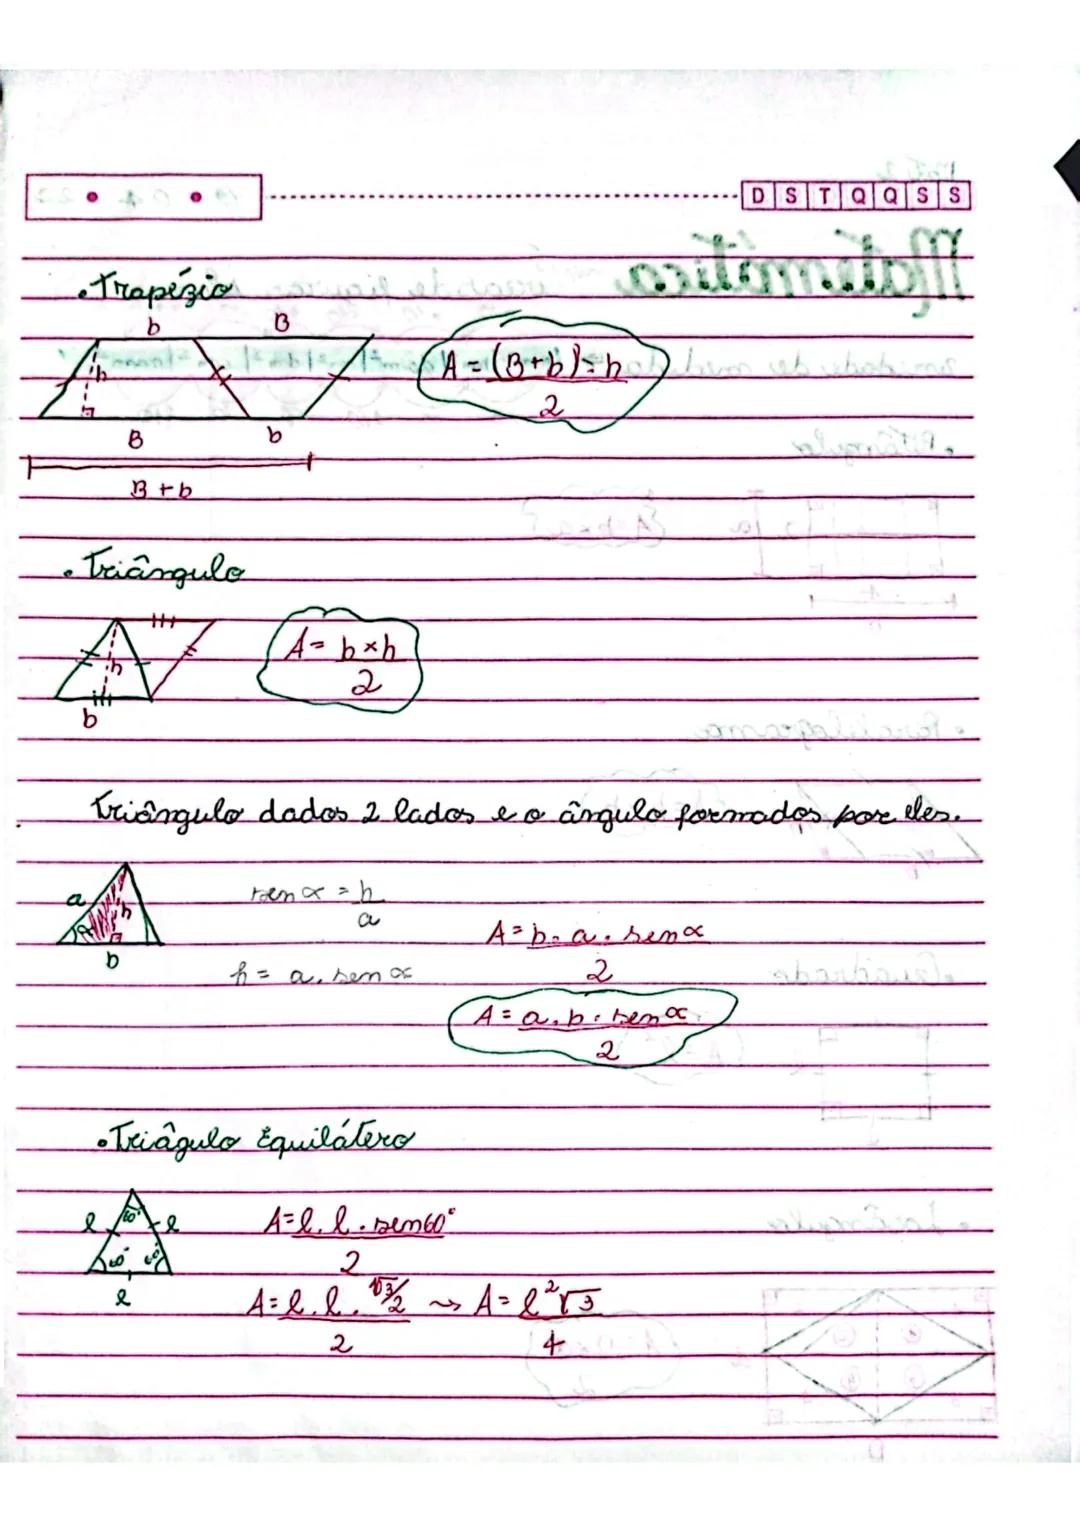 D S T Q Q S S
• Trapézio
b B
h
A = (B+b) . h
2
B b
B + b
• Triângulo
h
b
A = b × h
2
Triângulo dados 2 lados e o ângulo formados por eles.
a h
α
b
sen α = h
a
h = a . sen α
A = b . a . sen α
2
A = a . b . sen α
2
• Triâgulo Equilátero
l l
60° 60° 60°
l
A = l . l . sen 60°
2
A = l . l . √3/2 ~> A = l²√3
2 4